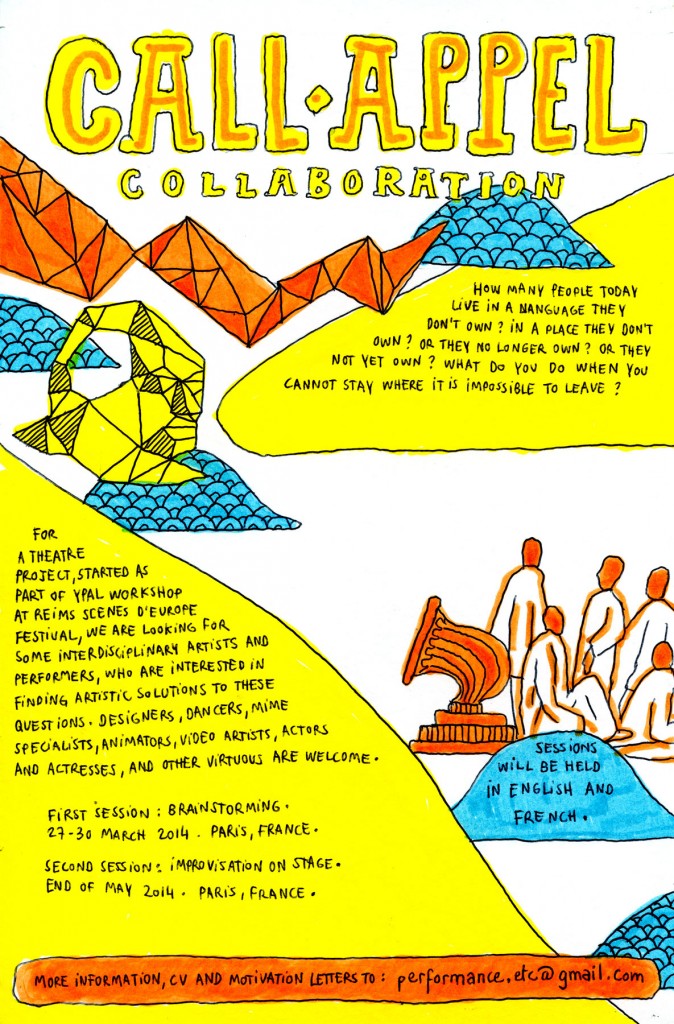 CALL · APPEL
COLLABORATION
HOW MANY PEOPLE TODAY
LIVE IN A NANGUAGE THEY
DON'T OWN? IN A PLACE THEY DON'T
OWN? OR THEY NO LONGER OWN? OR THEY
NOT YET OWN? WHAT DO YOU DO WHEN YOU
CANNOT STAY WHERE IT IS IMPOSSIBLE TO LEAVE?
FOR
A THEATRE
PROJECT, STARTED AS
PART OF YPAL WORKSHOP
AT REIMS SCENES D'EUROPE
FESTIVAL, WE ARE LOOKING FOR
SOME INTERDISCIPLINARY ARTISTS AND
PERFORMERS, WHO ARE INTERESTED IN
FINDING ARTISTIC SOLUTIONS TO THESE
QUESTIONS. DESIGNERS, DANCERS, MIME
SPECIALISTS, ANIMATORS, VIDEO ARTISTS, ACTORS
AND ACTRESSES, AND OTHER VIRTUOUS ARE WELCOME.
SESSIONS
WILL BE HELD
IN ENGLISH AND
FRENCH.
FIRST SESSION: BRAINSTORMING.
27-30 MARCH 2014. PARIS, FRANCE.
SECOND SESSION: IMPROVISATION ON STAGE.
END OF MAY 2014. PARIS, FRANCE.
MORE INFORMATION, CV AND MOTIVATION LETTERS TO: performance.etc@gmail.com